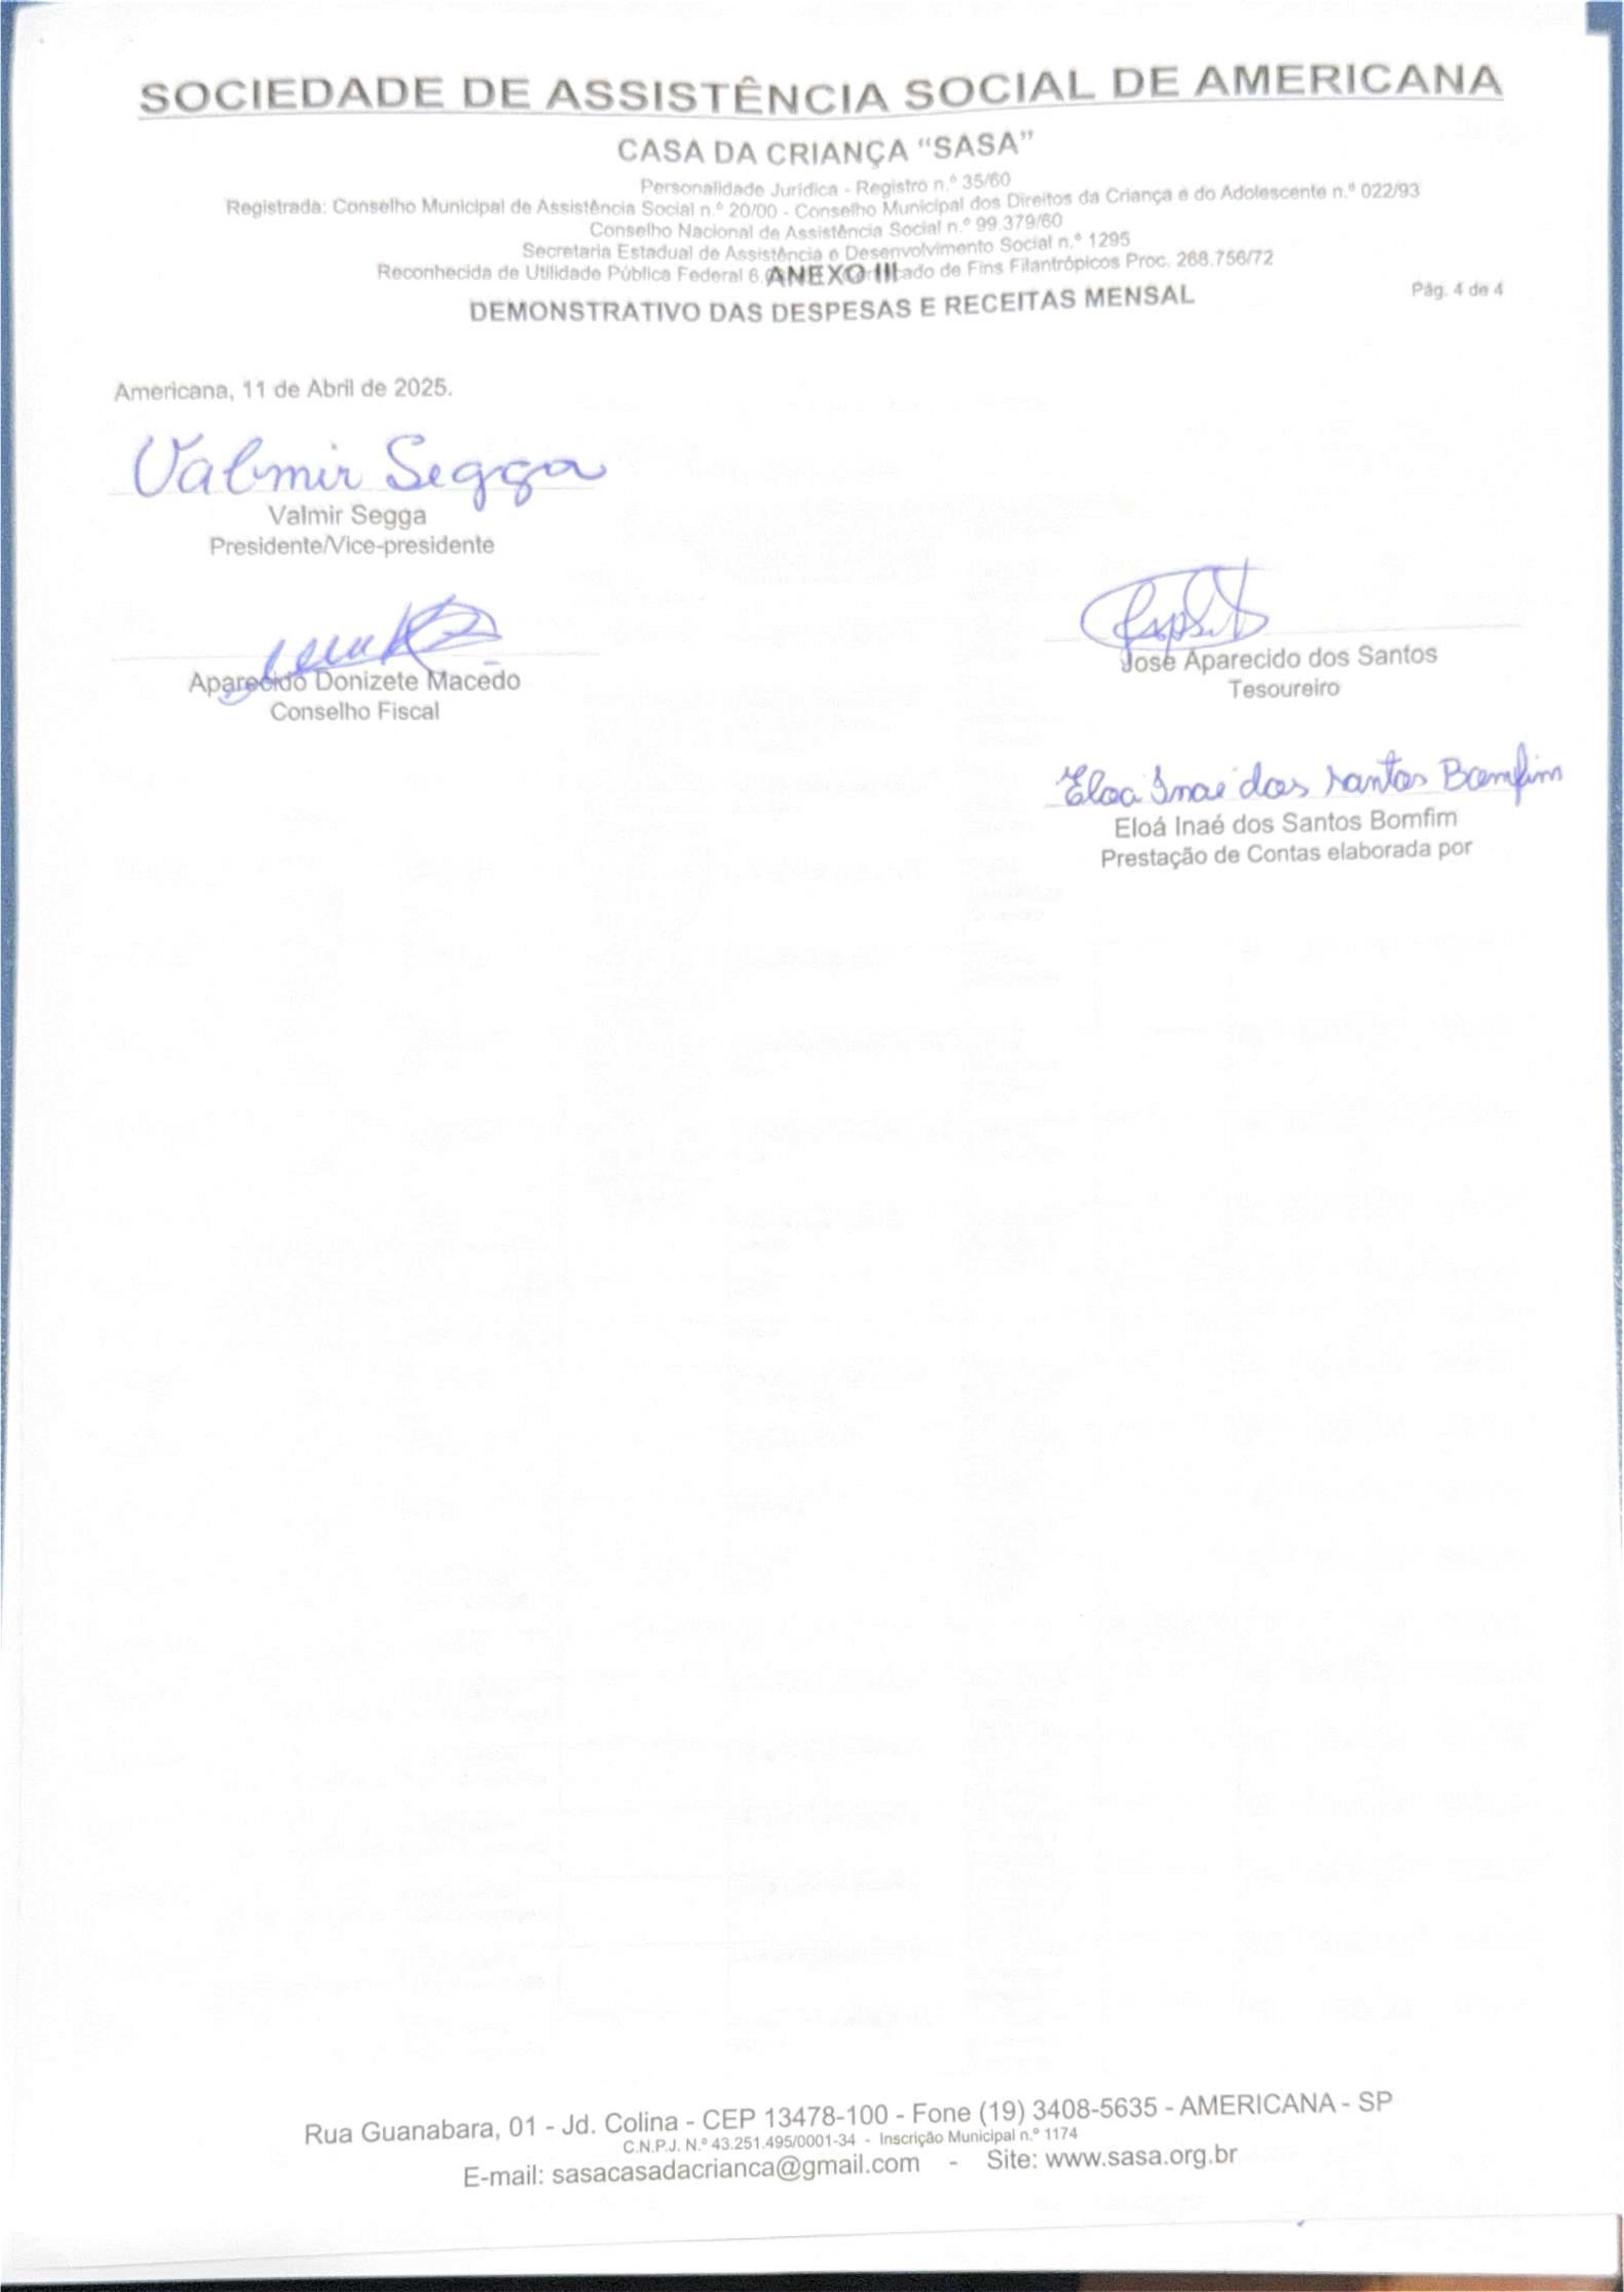 SOCIEDADE DE ASSISTÊNCIA SOCIAL DE AMERICANA
CASA DA CRIANÇA “SASA”
Personalidade Jurídica - Registro n.º 35/60
Registrada: Conselho Municipal de Assistência Social n.º 20/00 - Conselho Municipal dos Direitos da Criança e do Adolescente n.º 022/93
Conselho Nacional de Assistência Social n.º 99.379/60
Secretaria Estadual de Assistência e Desenvolvimento Social n.º 1295
Reconhecida de Utilidade Pública Federal ado de Fins Filantrópicos Proc. 268.756/72
ANEXO III
DEMONSTRATIVO DAS DESPESAS E RECEITAS MENSAL
Pág. 4 de 4
Americana, 11 de Abril de 2025.
Valmir Segga
Valmir Segga
Presidente/Vice-presidente
Aparecido Donizete Macedo
Conselho Fiscal
José Aparecido dos Santos
Tesoureiro
Eloá Inaé dos Santos Bomfim
Eloá Inaé dos Santos Bomfim
Prestação de Contas elaborada por
Rua Guanabara, 01 - Jd. Colina - CEP 13478-100 - Fone (19) 3408-5635 - AMERICANA - SP
C.N.P.J. N.º 43.251.495/0001-34 - Inscrição Municipal n.º 1174
E-mail: sasacasadacrianca@gmail.com - Site: www.sasa.org.br